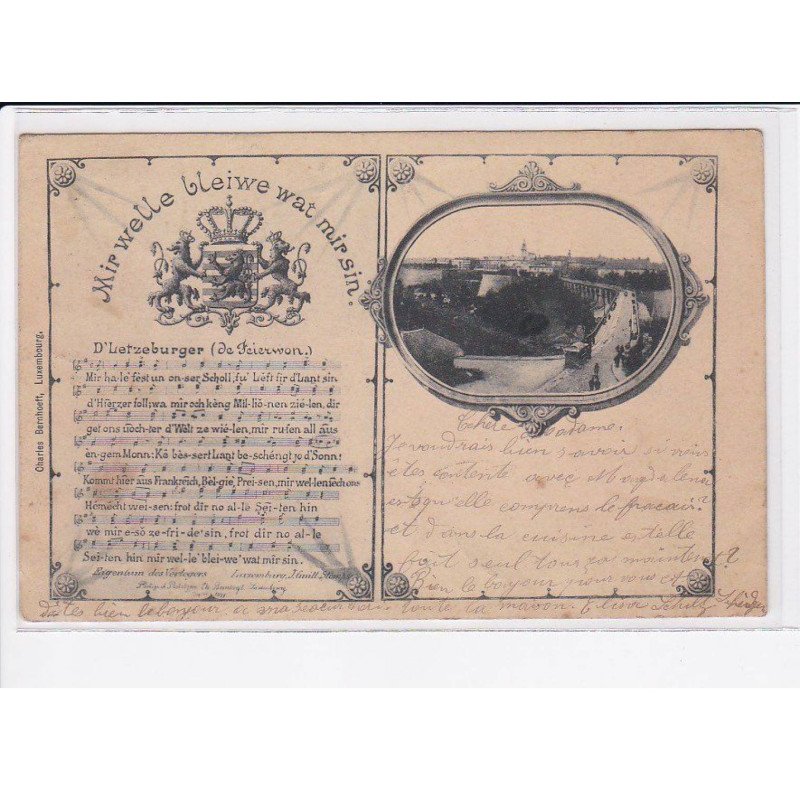 Mir welle bleiwe wat mir sin.
D'Letzeburger (de Feierwon.)
Mir ha-le' fest un on-ser Scholl, fu' Le'ft fir d'Lant sin
d'Hierzer foll; wa mir och kèng Mil-lió-nen zie-len, dir
get ons töch-ter d'Welt ze wié-len, mir rufen all aus
èn-gem Monn: Kä bès-sert Lant be-schéngt jo d'Sonn!
Kommt hier aus Frankreich, Bèl-gie, Prei-sen, mir wel-len iech ons
Hémecht wei-sen: frot dir no al-le Sei-ten hin
wé mir e-sò ze-fri-de' sin, frot dir no al-le
Sei-ten hin mir wel-le' blei-we' wat mir sin.
Eigentum des Verlegers Luxemburg,
Charles Bernhoeft, Luxembourg.
Chère Madame.
Je voudrais bien savoir si vous
êtes contente avec Magdalena
est qu'elle comprens le français?
et dans la cuisine est elle
fait seul tous ça maintent?
Bien le bojour pour vous et
dites bien lebonjour, a toute la maison.